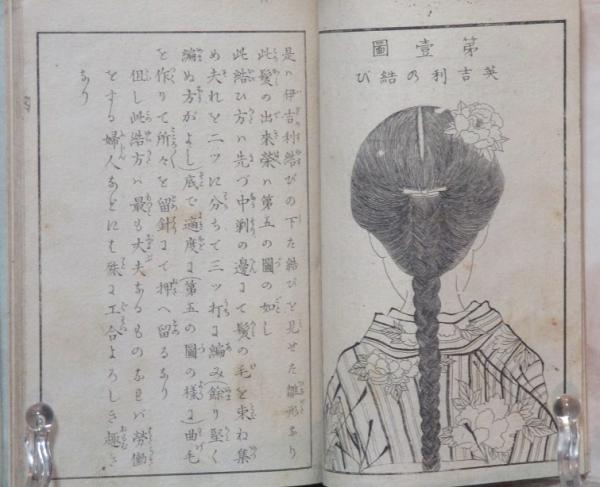 第壹圖
英吉利の結び
是ハ伊吉利結びの下た結びを見せた雛形なり
此髪の出來榮ハ第五の圖の如し
此結ひ方ハ先づ中剃の邊にて髪の毛を束ね集
め夫れを二ツに分ちて三ツ打に編み餘り堅く
編ぬ方がよし底で適度に(第五の圖の樣に)曲毛
を作りて所々を留針にて押へ留るなり
但し此結方ハ最も丈夫なるものなれバ勞働
をする婦人などにも殊に工合よろしき趣き
なり